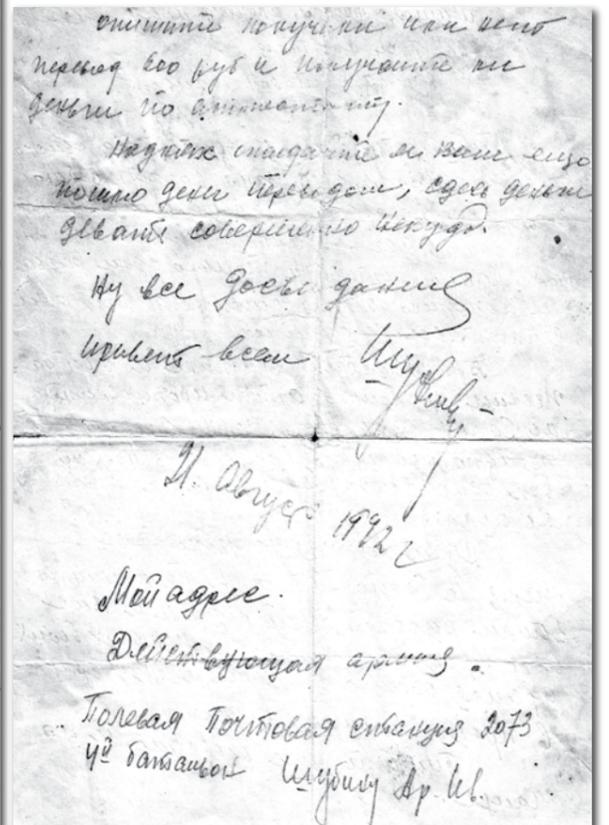 опишите получили или нет
перевод 600 руб и получаите ли
деньги по аттестату.
вам ещо
пошлю денег переводом, сдесь деньги
девать совершенно некуда.
Ну все досви дание
привет всем
21. Август 1942 г
Мой адрес.
Действующая армия.
Полевая Почтовая станция 2073
4й батальон Шубину Ар. Ив.